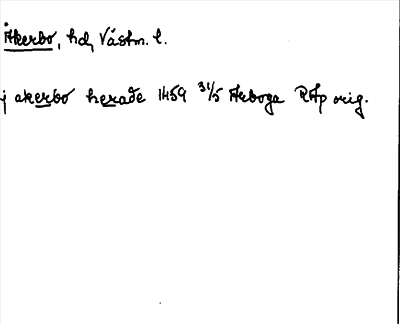 Åkerbo, hd, Västm. l.
j akerbo herade 1459 31/5 Arboga RAp orig.